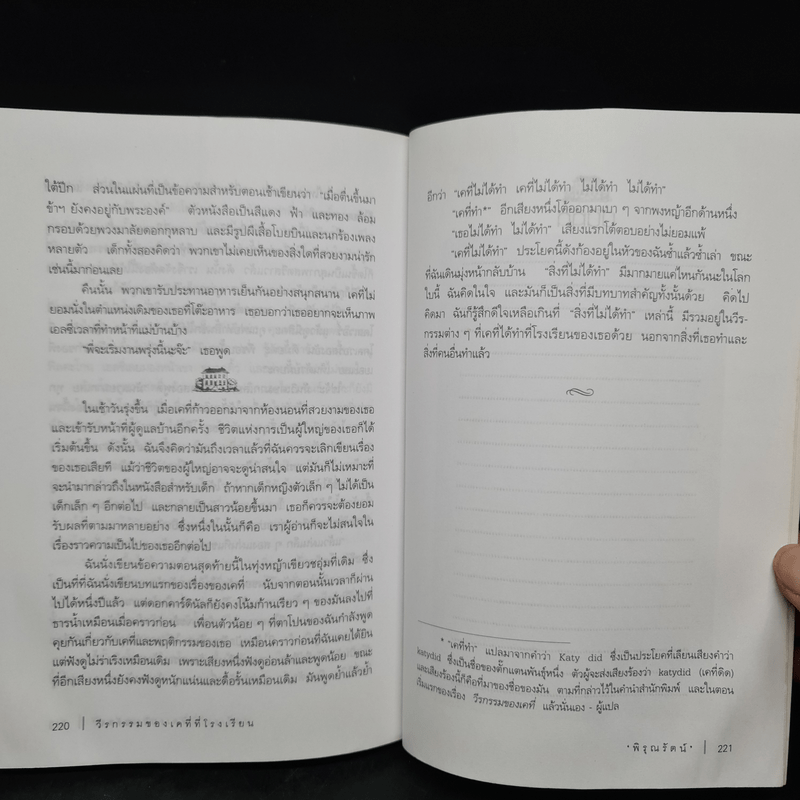 ใต้ปีก ส่วนในแผ่นที่เป็นข้อความสำหรับตอนเช้าเขียนว่า “เมื่อตื่นขึ้นมา
ข้าฯ ยังคงอยู่กับพระองค์” ตัวหนังสือเป็นสีแดง ฟ้า และทอง ล้อม
กรอบด้วยพวงมาลัยดอกกุหลาบ และมีรูปผีเสื้อโบยบินและนกร้องเพลง
หลายตัว เด็กทั้งสองคิดว่า พวกเขาไม่เคยเห็นของสิ่งใดที่สวยงามน่ารัก
เช่นนี้มาก่อนเลย
คืนนั้น พวกเขารับประทานอาหารเย็นกันอย่างสนุกสนาน เคที่ไม่
ยอมนั่งในตำแหน่งเดิมของเธอที่โต๊ะอาหาร เธอบอกว่าเธออยากจะเห็นภาพ
เอลซี่เวลาที่ทำหน้าที่แม่บ้านบ้าง
“พี่จะเริ่มงานพรุ่งนี้นะจ๊ะ” เธอพูด
ในเช้าวันรุ่งขึ้น เมื่อเคที่ก้าวออกมาจากห้องนอนที่สวยงามของเธอ
และเข้ารับหน้าที่ผู้ดูแลบ้านอีกครั้ง ชีวิตแห่งการเป็นผู้ใหญ่ของเธอก็ได้
เริ่มต้นขึ้น ดังนั้น ฉันจึงคิดว่ามันถึงเวลาแล้วที่ฉันควรจะเลิกเขียนเรื่อง
ของเธอเสียที แม้ว่าชีวิตของผู้ใหญ่อาจจะดูน่าสนใจ แต่มันก็ไม่เหมาะที่
จะนำมากล่าวถึงในหนังสือสำหรับเด็ก ถ้าหากเด็กหญิงตัวเล็ก ๆ ไม่ได้เป็น
เด็กเล็ก ๆ อีกต่อไป และกลายเป็นสาวน้อยขึ้นมา เธอก็ควรจะต้องยอม
รับผลที่ตามมาหลายอย่าง ซึ่งหนึ่งในนั้นก็คือ เราผู้อ่านก็จะไม่สนใจใน
เรื่องราวความเป็นไปของเธออีกต่อไป
ฉันนั่งเขียนข้อความตอนสุดท้ายนี้ในทุ่งหญ้าเขียวชอุ่มที่เดิม ซึ่ง
เป็นที่ที่ฉันนั่งเขียนบทแรกของเรื่องของเคที่ นับจากตอนนั้นเวลาก็ผ่าน
ไปได้หนึ่งปีแล้ว แต่ดอกคาร์ดินัลก็ยังคงโน้มก้านเรียว ๆ ของมันลงไปที่
ธารน้ำเหมือนเมื่อคราวก่อน เพื่อนตัวน้อย ๆ ที่ตาโปนของฉันกำลังพูด
คุยกันเกี่ยวกับเคที่และพฤติกรรมของเธอ เหมือนคราวก่อนที่ฉันเคยได้ยิน
แต่ฟังดูไม่ร่าเริงเหมือนเดิม เพราะเสียงหนึ่งฟังดูอ่อนล้าและพูดน้อย ขณะ
ที่อีกเสียงหนึ่งยังคงฟังดูหนักแน่นและดื้อรั้นเหมือนเดิม มันพูดย้ำแล้วย้ำ
220 | วีรกรรมของเคที่ที่โรงเรียน
อีกว่า “เคที่ไม่ได้ทำ เคที่ไม่ได้ทำ ไม่ได้ทำ ไม่ได้ทำ”
“เคที่ทำ*” อีกเสียงหนึ่งโต้ออกมาเบา ๆ จากพงหญ้าอีกด้านหนึ่ง
“เธอไม่ได้ทำ ไม่ได้ทำ” เสียงแรกโต้ตอบอย่างไม่ยอมแพ้
“เคที่ไม่ได้ทำ” ประโยคนี้ดังก้องอยู่ในหัวของฉันซ้ำแล้วซ้ำเล่า ขณะ
ที่ฉันเดินมุ่งหน้ากลับบ้าน “สิ่งที่ไม่ได้ทำ” มีมากมายแค่ไหนกันนะในโลก
ใบนี้ ฉันคิดในใจ และมันก็เป็นสิ่งที่มีบทบาทสำคัญทั้งนั้นด้วย คิดไป
คิดมา ฉันก็รู้สึกดีใจเหลือเกินที่ “สิ่งที่ไม่ได้ทำ” เหล่านี้ มีรวมอยู่ในวีร-
กรรมต่าง ๆ ที่เคที่ได้ทำที่โรงเรียนของเธอด้วย นอกจากสิ่งที่เธอทำและ
สิ่งที่คนอื่นทำแล้ว
* “เคที่ทำ” แปลมาจากคำว่า Katy did ซึ่งเป็นประโยคที่เลียนเสียงคำว่า
katydid ซึ่งเป็นชื่อของตั๊กแตนพันธุ์หนึ่ง ตัวผู้จะส่งเสียงร้องว่า katydid (เคที่ดิด)
และเสียงร้องนี้ก็คือที่มาของชื่อของมัน ตามที่กล่าวไว้ในคำนำสำนักพิมพ์ และในตอน
เริ่มแรกของเรื่อง วีรกรรมของเคที่ แล้วนั่นเอง - ผู้แปล
• พิรุณรัตน์ • | 221